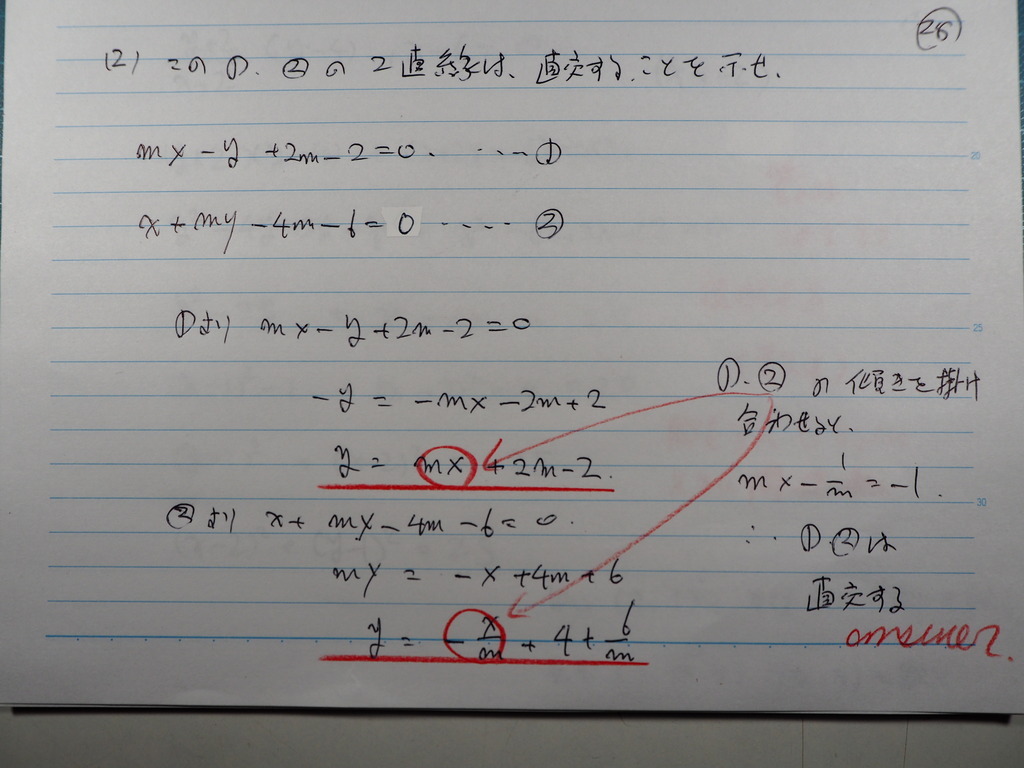 (28)
(2) この①.②の2直線は、直交することを示せ.
mx - y + 2m - 2 = 0. ····①
x + my - 4m - 6 = 0 ····②
①より mx - y + 2m - 2 = 0
-y = -mx - 2m + 2
y = mx + 2m - 2.
②より x + my - 4m - 6 = 0.
my = -x + 4m + 6
y = -x/m + 4 + 6/m
①.②の傾きを掛け
合わせると、
m × -1/m = -1.
∴ ①.②は
直交する
answer.
20
25
30